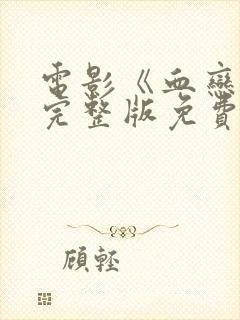 電影《血戀
完整版免費
顧輕